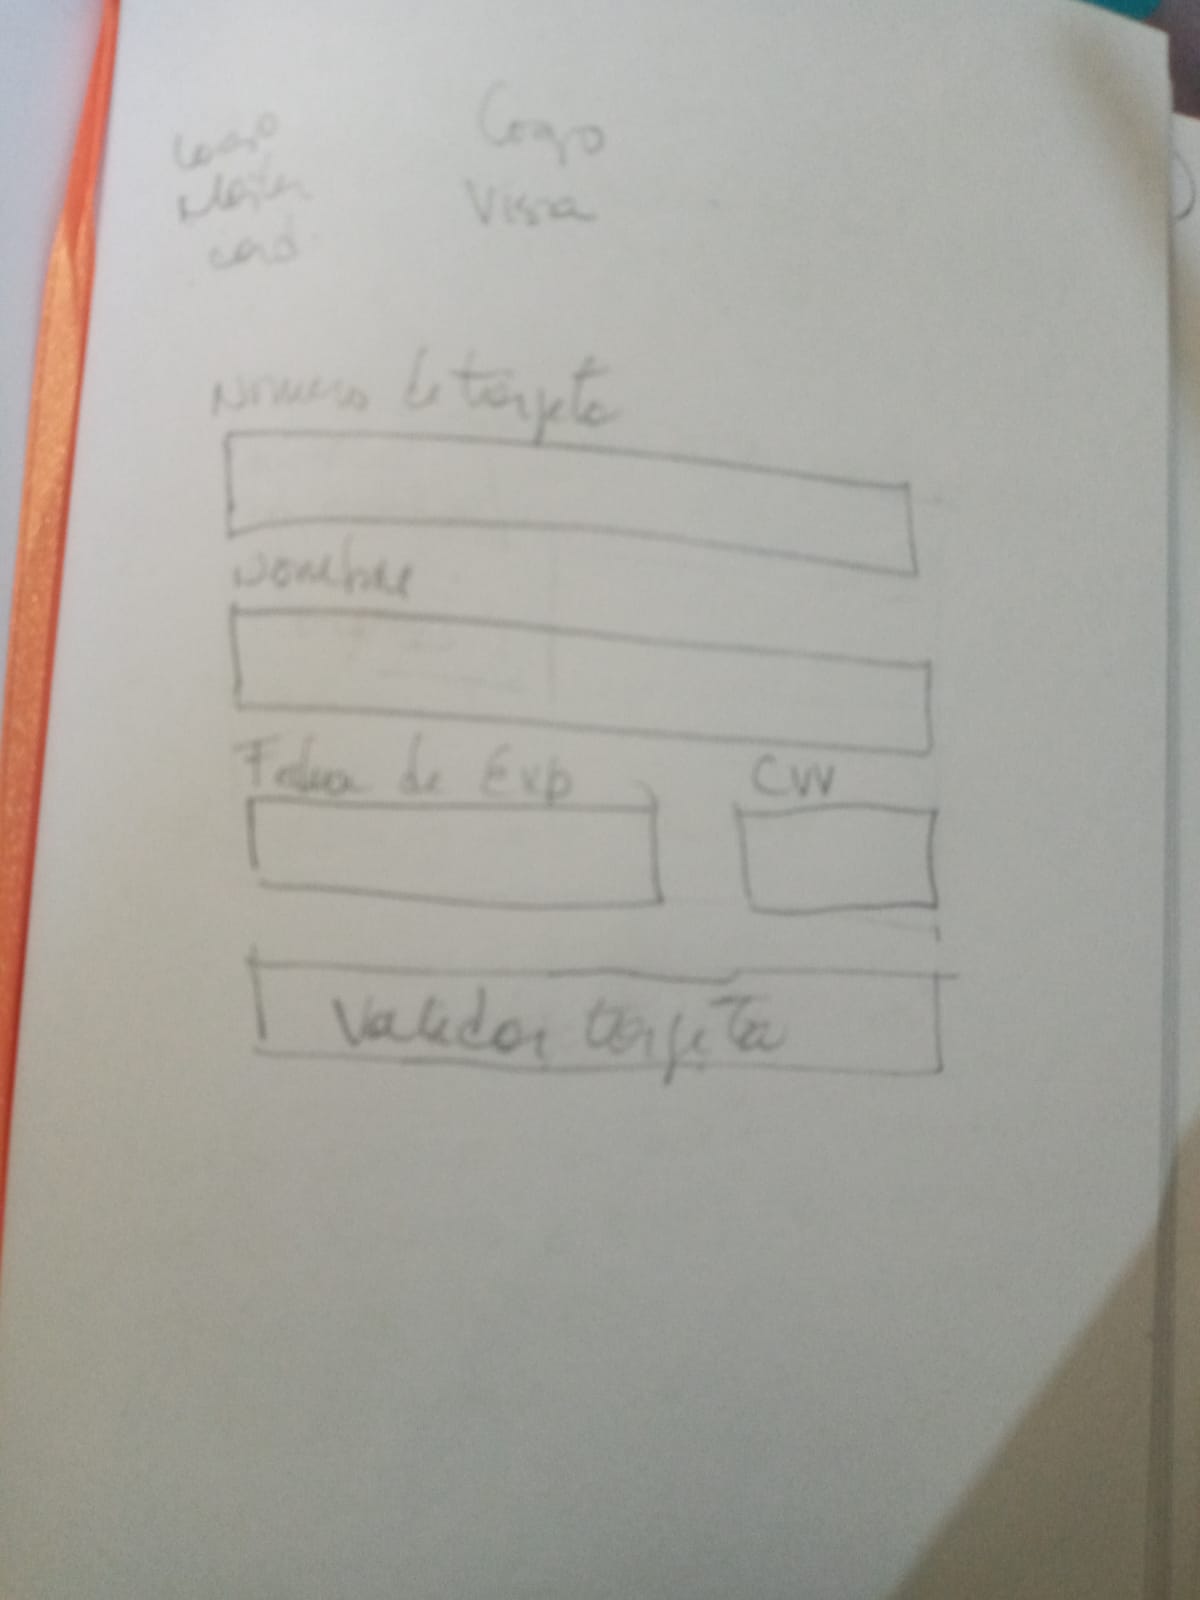 Logo
Master
card
Logo
Vissa
Número de tarjeta
Nombre
Fecha de Exp
CVV
Validar tarjeta